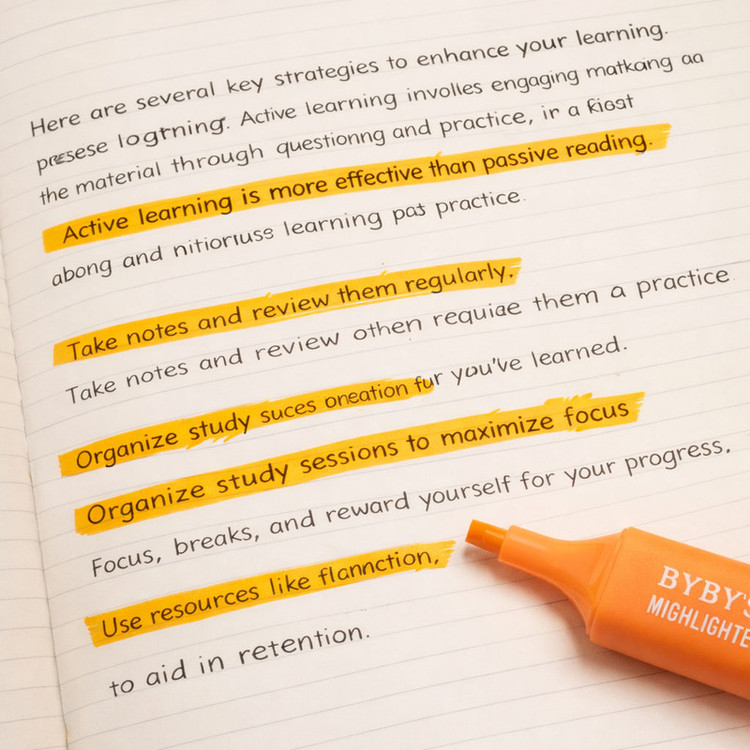 Here are several key strategies to enhance your learning.
presese logrning. Active learning involles engaging matkang aa
the material through questionng and practice, ir a Riest
Active learning is more effective than passive reading.
abong and nitioriuss learning pas practice.
Take notes and review them regularly.
Take notes and review othen requiae them a practice
Organize study suces oneation fur you've learned.
Organize study sessions to maximize focus
Focus, breaks, and reward yourself for your progress.
Use resources like flannction,
to aid in retention.
BYBY'S
MIGHLIGHTE